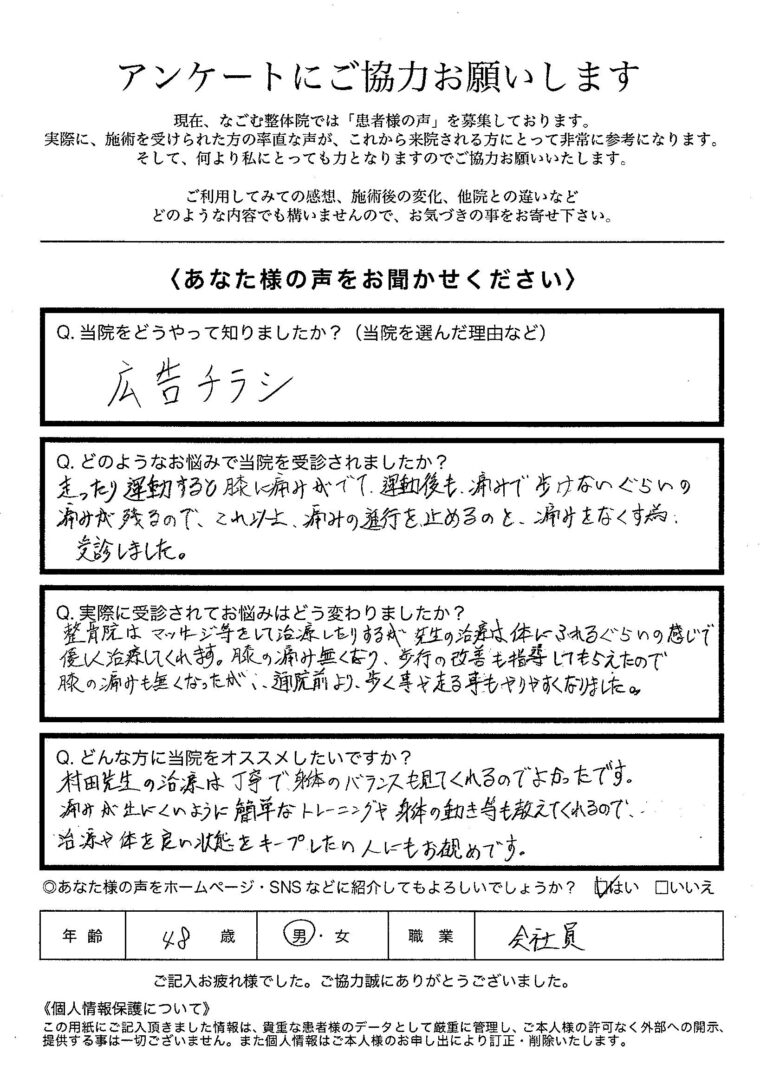 アンケートにご協力お願いします
現在、なごむ整体院では「患者様の声」を募集しております。
実際に、施術を受けられた方の率直な声が、これから来院される方にとって非常に参考になります。
そして、何より私にとっても力となりますのでご協力お願いいたします。
ご利用してみての感想、施術後の変化、他院との違いなど
どのような内容でも構いませんので、お気づきの事をお寄せ下さい。
〈あなた様の声をお聞かせください〉
Q. 当院をどうやって知りましたか？（当院を選んだ理由など）
広告チラシ
Q. どのようなお悩みで当院を受診されましたか？
走ったり運動すると膝に痛みがでて、運動後も、痛みで歩けないぐらいの
痛みが残るので、これ以上、痛みの進行を止めるのと、痛みをなくす為、
受診しました。
Q. 実際に受診されてお悩みはどう変わりましたか？
整骨院はマッサージ等をして治療したりするが先生の治療は体にふれるぐらいの感じで
優しく治療してくれます。膝の痛み無くなり、歩行の改善も指導してもらえたので
膝の痛みも無くなったが、、通院前より、歩く事や走る事もやりやすくなりました。
Q. どんな方に当院をオススメしたいですか？
村田先生の治療は丁寧で身体のバランスも見てくれるのでよかったです。
痛みが出にくいように簡単なトレーニングや身体の動き等も教えてくれるので、
治療や体を良い状態をキープしたい人にもお観めです。
◎あなた様の声をホームページ・SNS などに紹介してもよろしいでしょうか？ ☑はい □いいえ
年齢 48 歳 男・女 職業 会社員
ご記入お疲れ様でした。ご協力誠にありがとうございました。
《個人情報保護について》
この用紙にご記入頂きました情報は、貴重な患者様のデータとして厳重に管理し、ご本人様の許可なく外部への開示、
提供する事は一切ございません。また個人情報はご本人様のお申し出により訂正・削除いたします。